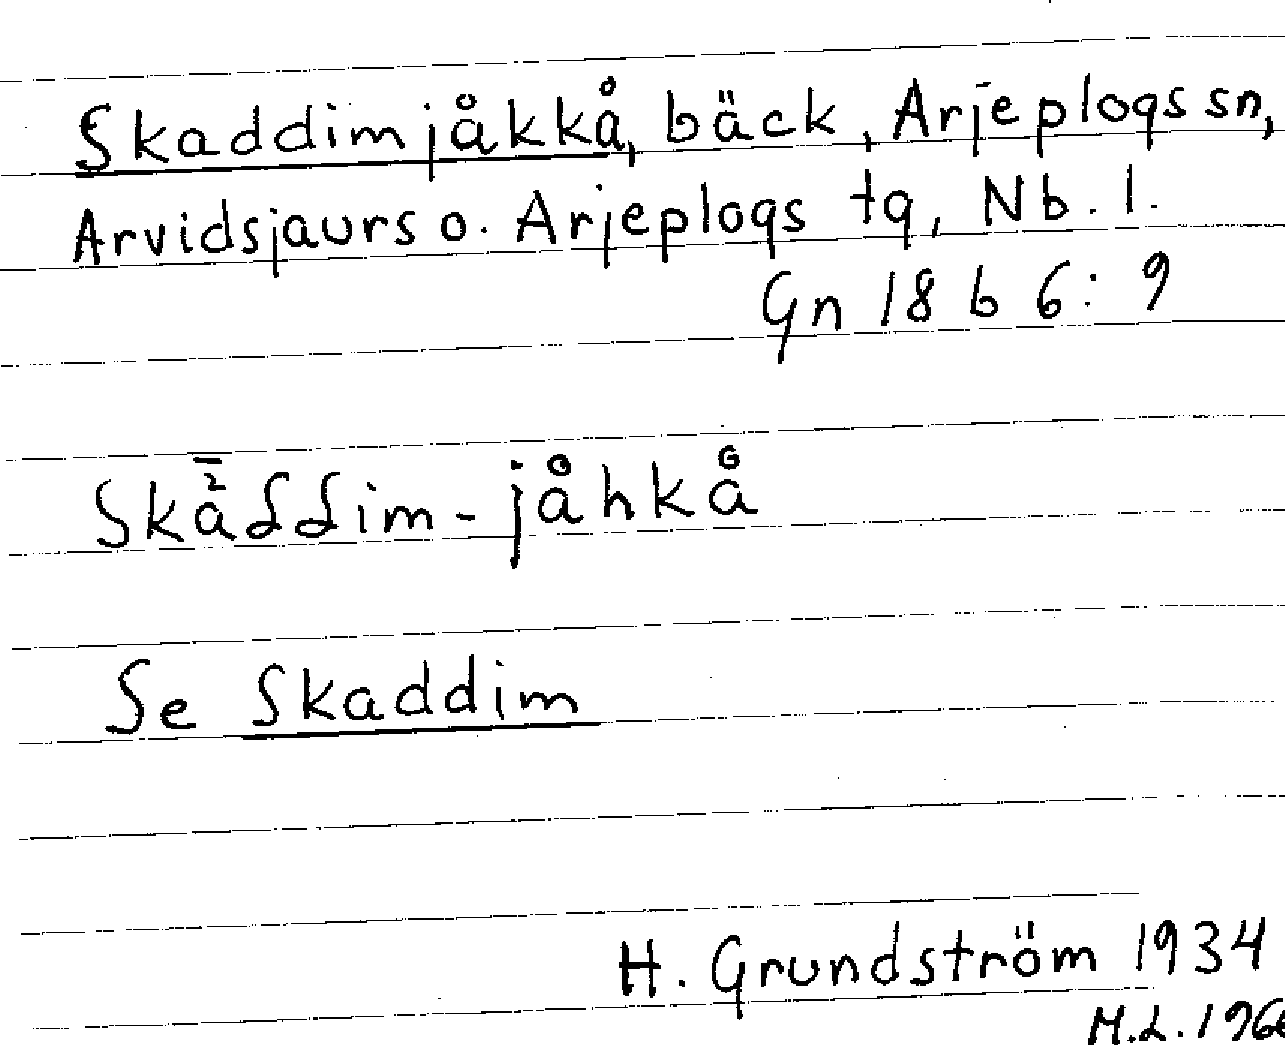 Skaddimjåkkå, bäck, Arjeplogs sn,
Arvidsjaurs o. Arjeplogs tg, Nb. l.
Gn 18 b 6: 9
Skā̀δδim-jåhkå
Se Skaddim
H. Grundström 1934
M.L. 196